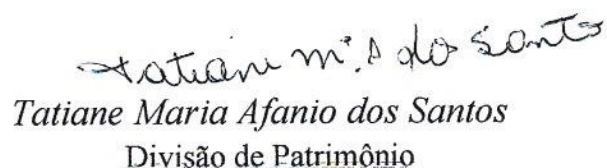 Tatiane Mª. A do Santo
Tatiane Maria Afanio dos Santos
Divisão de Patrimônio